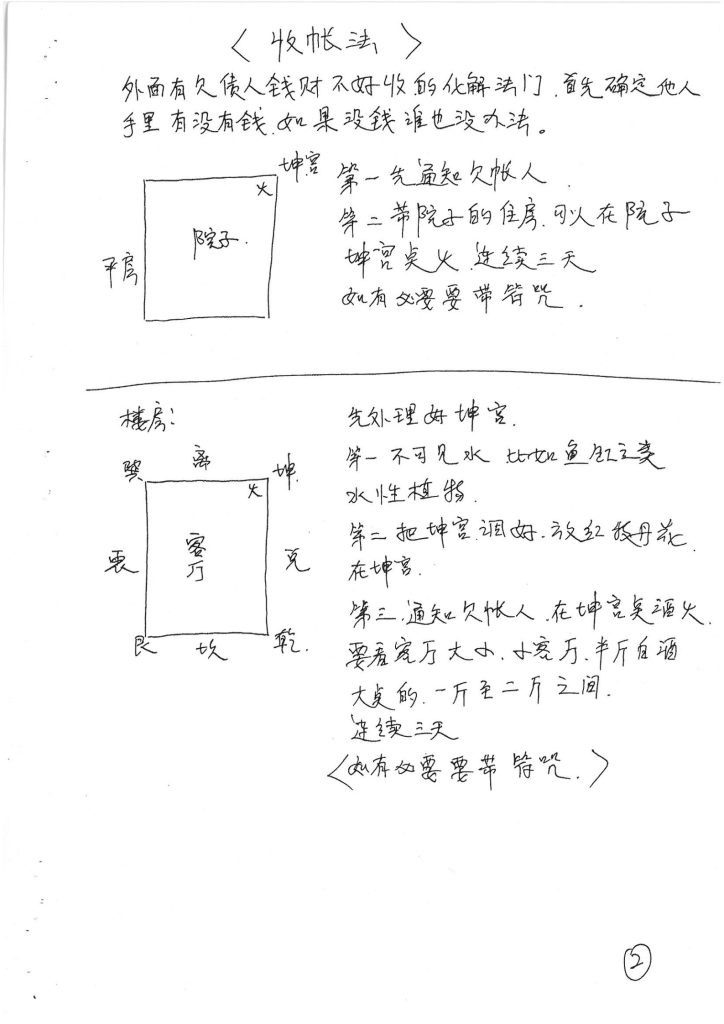 〈收帐法〉
外面有欠债人钱财不好收的化解法门.首先确定他人
手里有没有钱.如果没钱谁也没办法。
坤宫
火
院子.
平房
第一先通知欠帐人.
第二带院子的住房.可以在院子
坤宫点火.连续三天
如有必要要带符咒.
楼房:
巽 离 坤.
火
震 客厅 兑
艮 坎 乾.
先处理好坤宫.
第一不可见水 比如鱼缸之类
水性植物.
第二把坤宫调好.放红牡丹花.
在坤宫.
第三.通知欠帐人.在坤宫点酒火.
要看客厅大小.小客厅.半斤白酒
大点的.一斤至二斤之间.
连续三天
〈如有必要要带符咒.〉
②